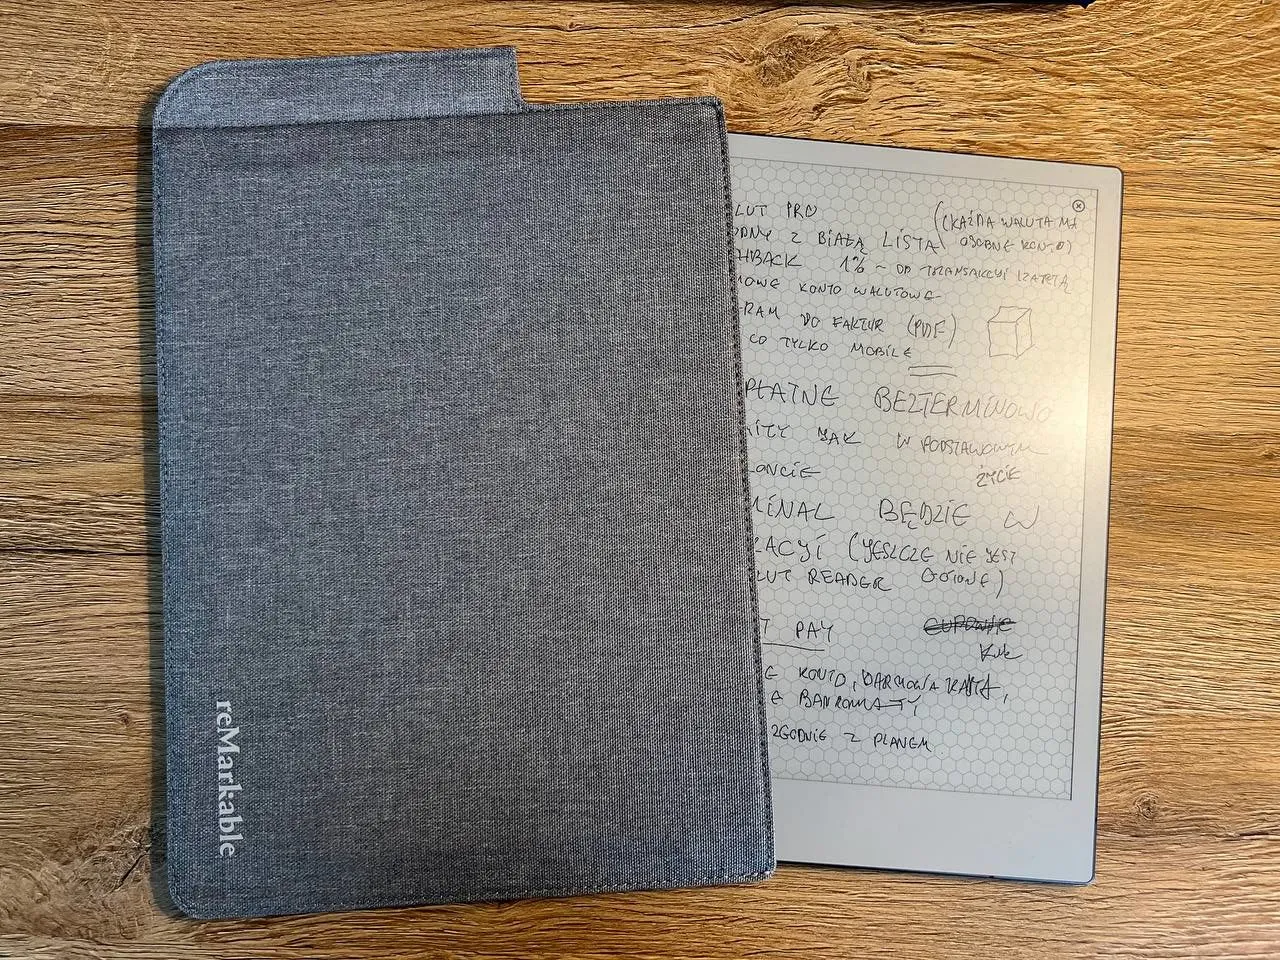 reMarkable
LUT PRO
(KAŻDA WALUTA MA
ODNY Z BIAŁĄ LISTĄ
OSOBNE KONTO)
HBACK 1% - OD TRANSAKCYI
OWE KONTO WALUTOWE
RAM DO FAKTUR (PDF)
CO TYLKO MOBILE
PŁATNE BEZTERMINOWO
ITY JAK W PODSTAWOWYM
ŻYCIE
LONCIE
MINAL BĘDZIE W
RACYI (YESZCZE NIE JEST
LUT READER)
T PAY
E KONTO, DARMOWA KARTA,
E BANKOMATY
ZGODNIE Z PLANEM